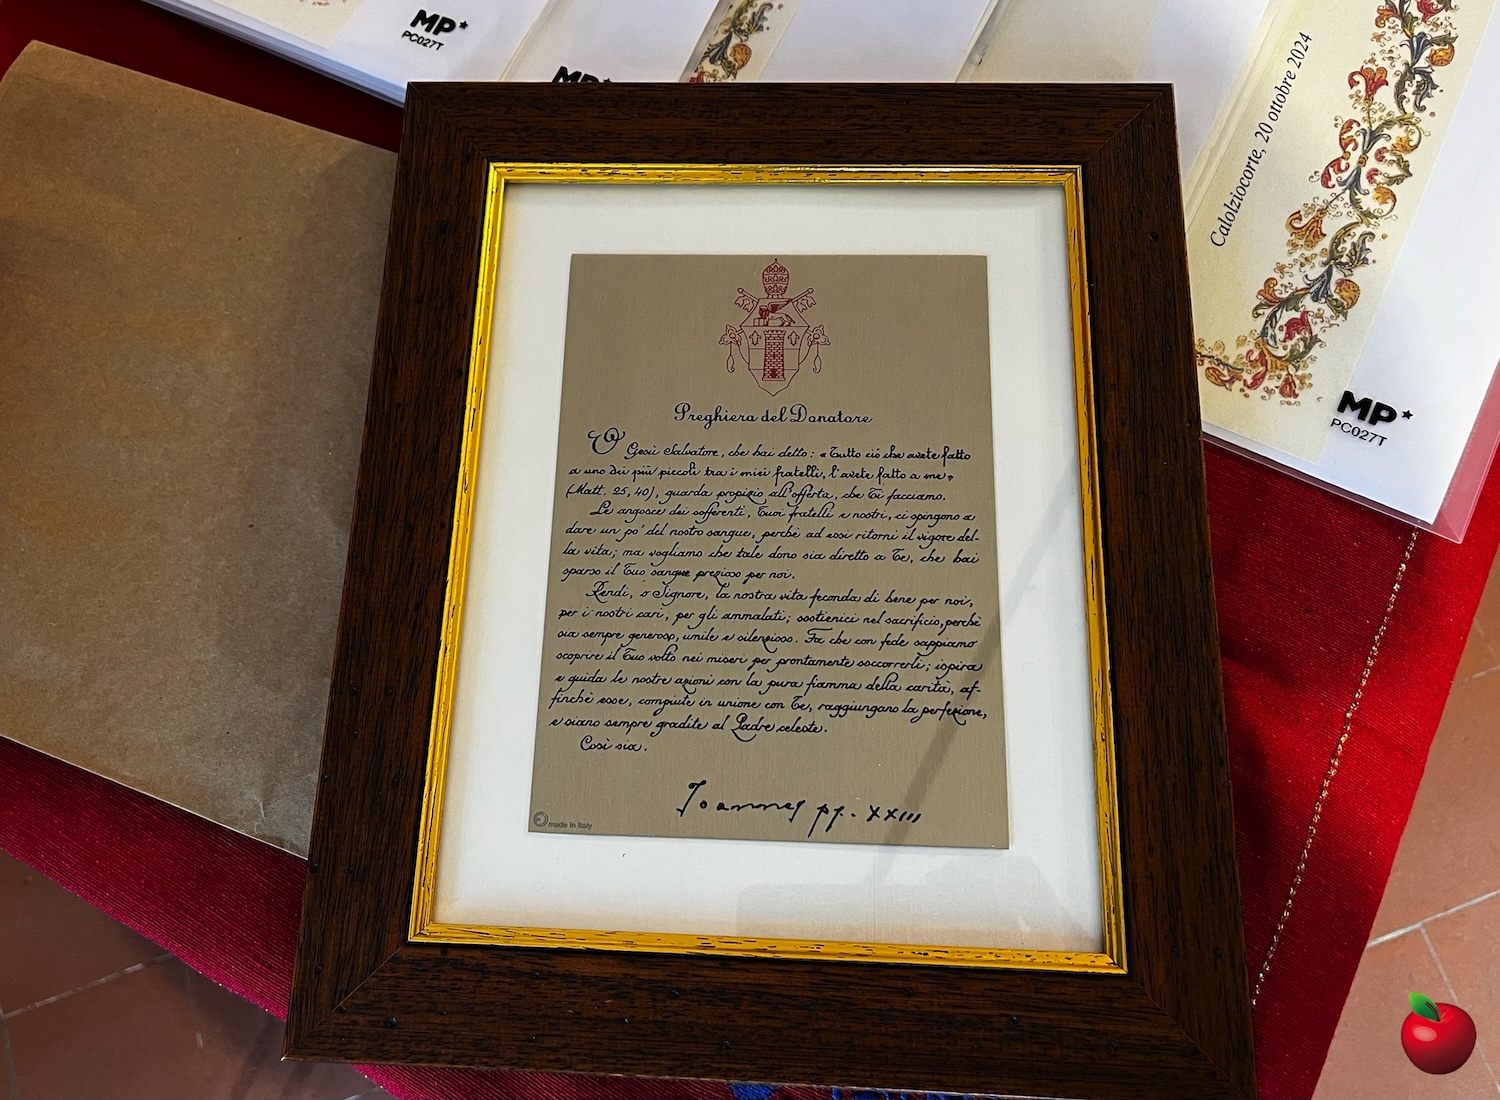 MP*
PC027T
MP*
Calolziocorte, 20 ottobre 2024
MP*
PC027T
Preghiera del Donatore
O Gesù Salvatore, che hai detto: «Tutto ciò che avete fatto
a uno dei più piccoli tra i miei fratelli, l'avete fatto a me»
(Matt. 25, 40), guarda propizio all'offerta, che Ti facciamo.
Le angosce dei sofferenti, Tuoi fratelli e nostri, ci spingono a
dare un po' del nostro sangue, perchè ad essi ritorni il vigore del-
la vita; ma vogliamo che tale dono sia diretto a Te, che hai
sparso il Tuo sangue prezioso per noi.
Rendi, o Signore, la nostra vita feconda di bene per noi,
per i nostri cari, per gli ammalati; sostienici nel sacrificio, perchè
sia sempre generoso, umile e silenzioso. Fa che con fede sappiamo
scoprire il Tuo volto nei miseri per prontamente soccorrerli; ispira
e guida le nostre azioni con la pura fiamma della carità, af-
finchè esse, compiute in unione con Te, raggiungano la perfezione,
e siano sempre gradite al Padre celeste.
Così sia.
Ioannes pp. XXIII
made in Italy